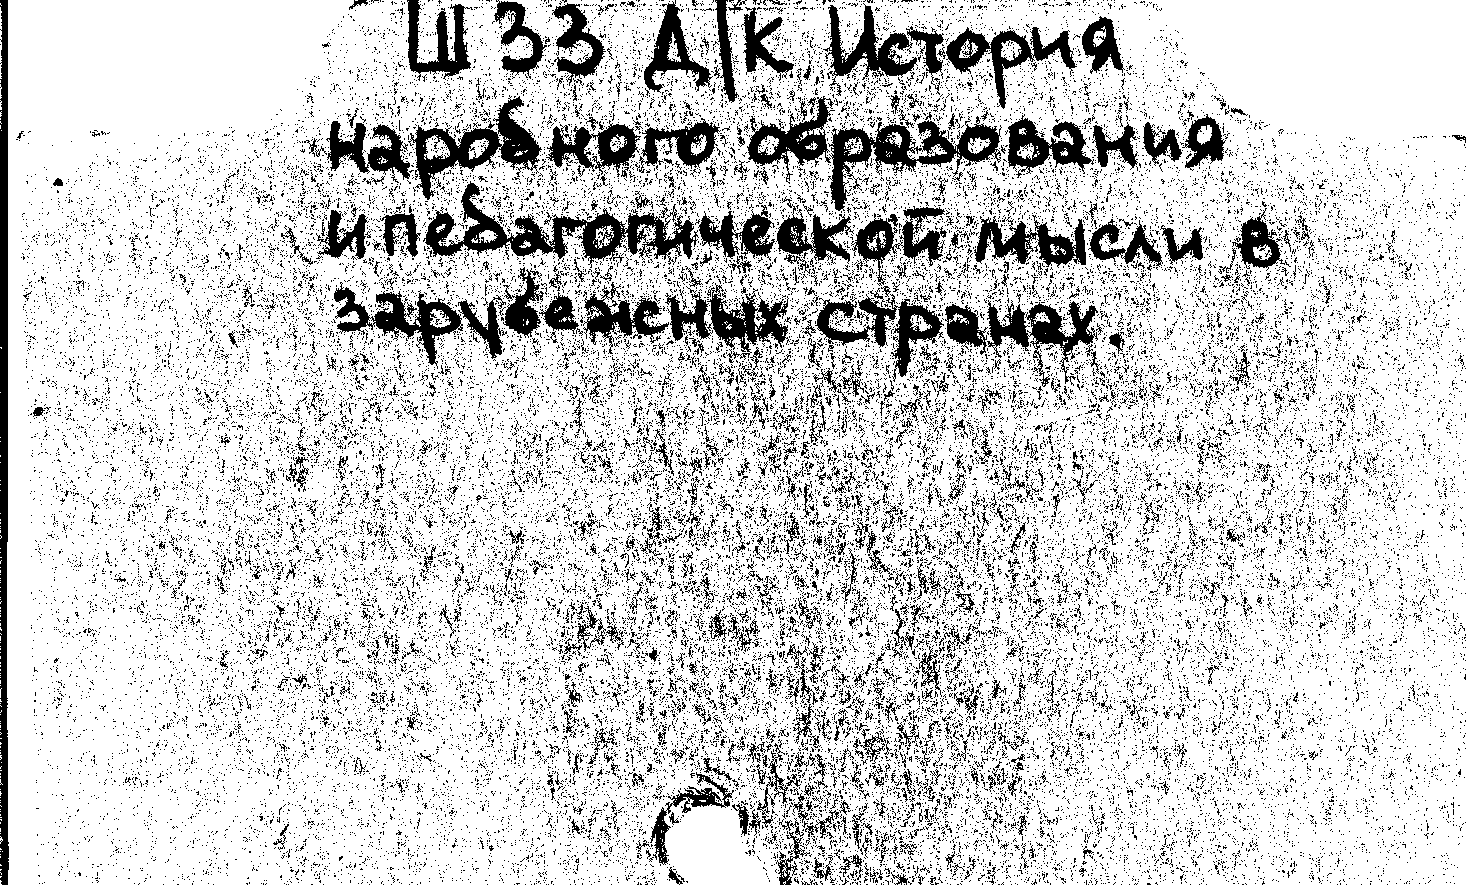 Ш 33 Д/К История
народного образования
и педагогической мысли в
зарубежных странах.